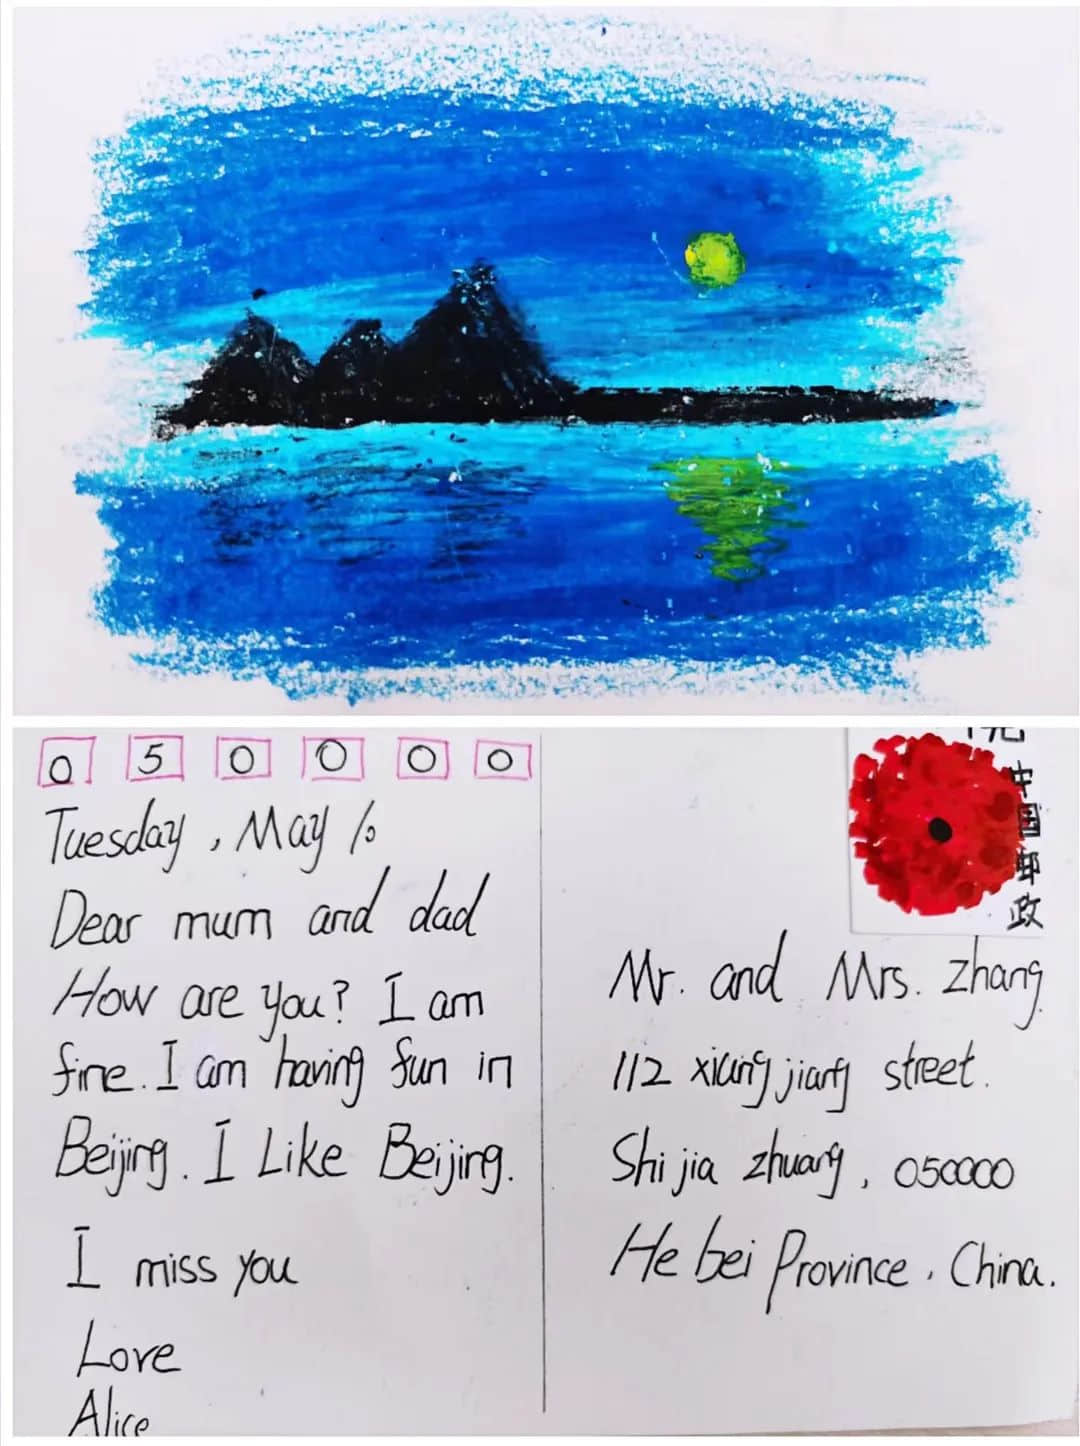 0 5 0 0 0 0
Tuesday, May 10
Dear mum and dad
How are you? I am
fine. I am having fun in
Beijing. I Like Beijing.
I miss you
Love
Alice
中国邮政
Mr. and Mrs. zhang.
112 xiangjiang street.
Shi jia zhuang, 050000
He bei Province, China.